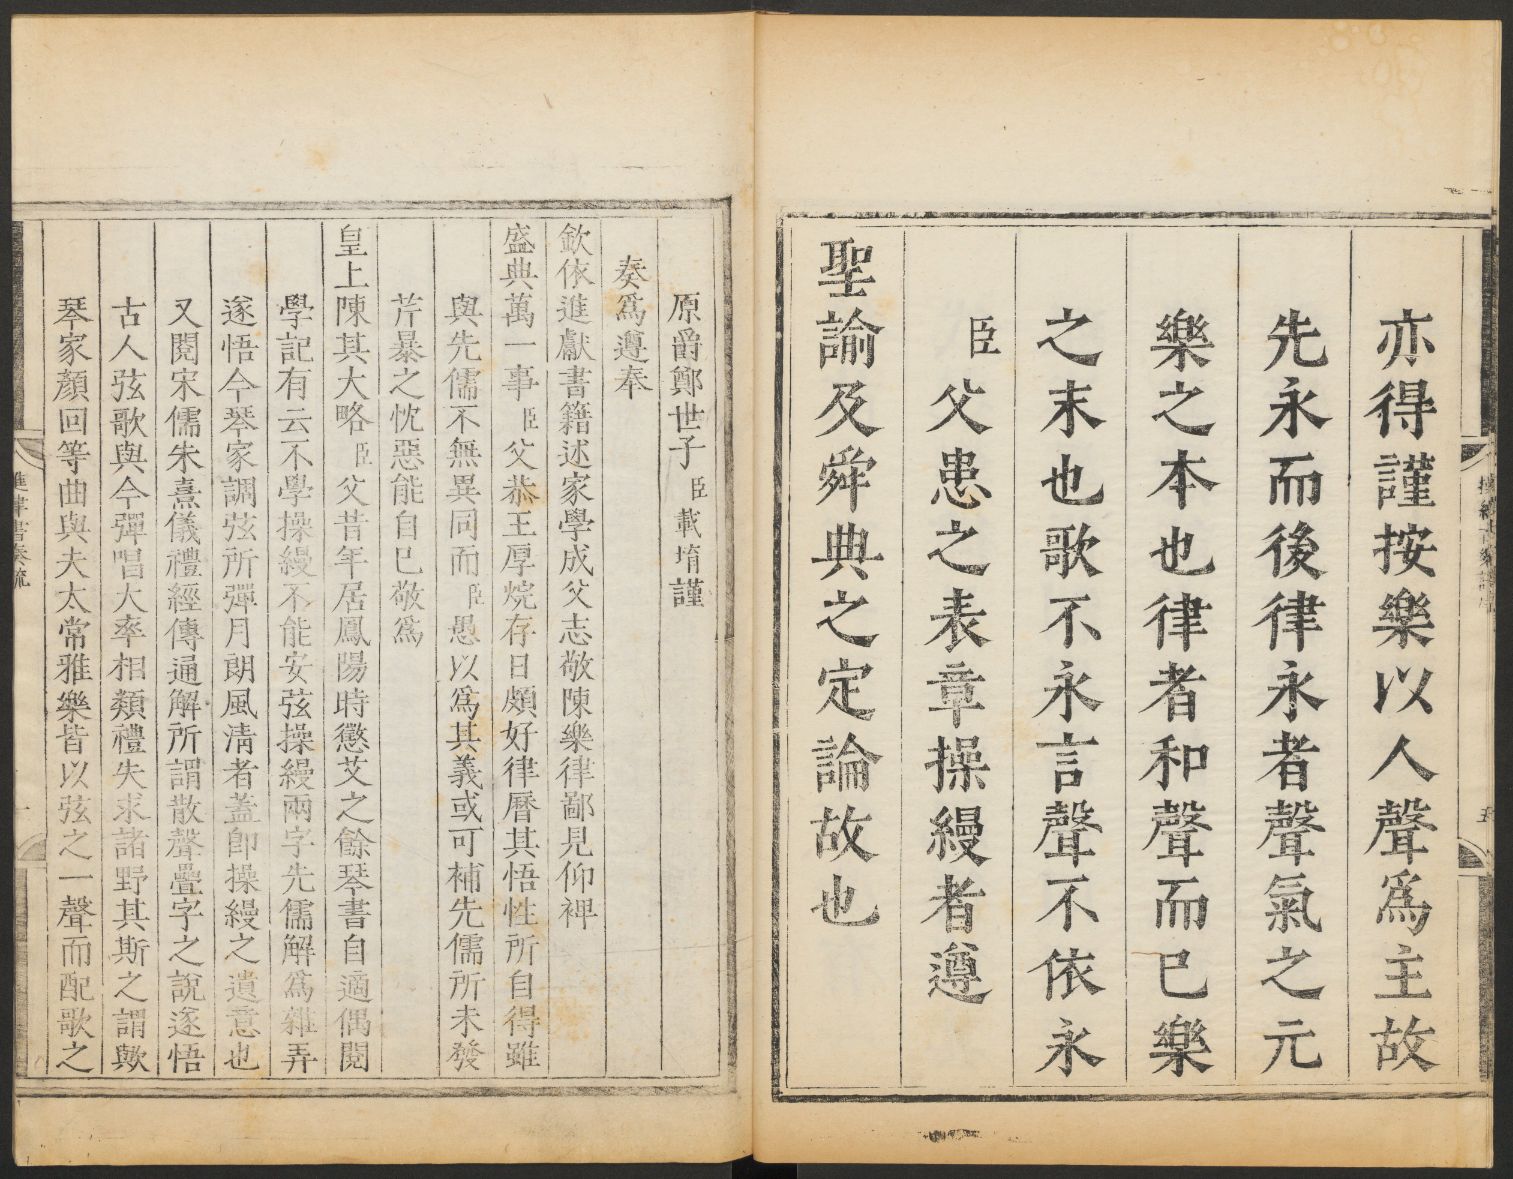 亦得謹按樂以人聲爲主故
先永而後律永者聲氣之元
樂之本也律者和聲而已樂
之末也歌不永言聲不依永
臣父患之表章操縵者遵
聖諭及舜典之定論故也
原爵鄭世子臣載堉謹
奏爲遵奉
欽依進獻書籍述家學成父志敬陳樂律鄙見仰裨
盛典萬一事臣父恭王厚烷存日頗好律曆其悟性所自得雖
與先儒不無異同而臣愚以爲其義或可補先儒所未發
芹暴之忱惡能自已敬爲
皇上陳其大略臣父昔年居鳳陽時懲艾之餘琴書自適偶閱
學記有云不學操縵不能安弦操縵兩字先儒解爲雜弄
遂悟今琴家調弦所彈月朗風清者蓋卽操縵之遺意也
又閱宋儒朱熹儀禮經傳通解所謂散聲疊字之說遂悟
古人弦歌與今彈唱大率相類禮失求諸野其斯之謂歟
琴家顏回等曲與夫太常雅樂皆以弦之一聲而配歌之
進律書奏疏